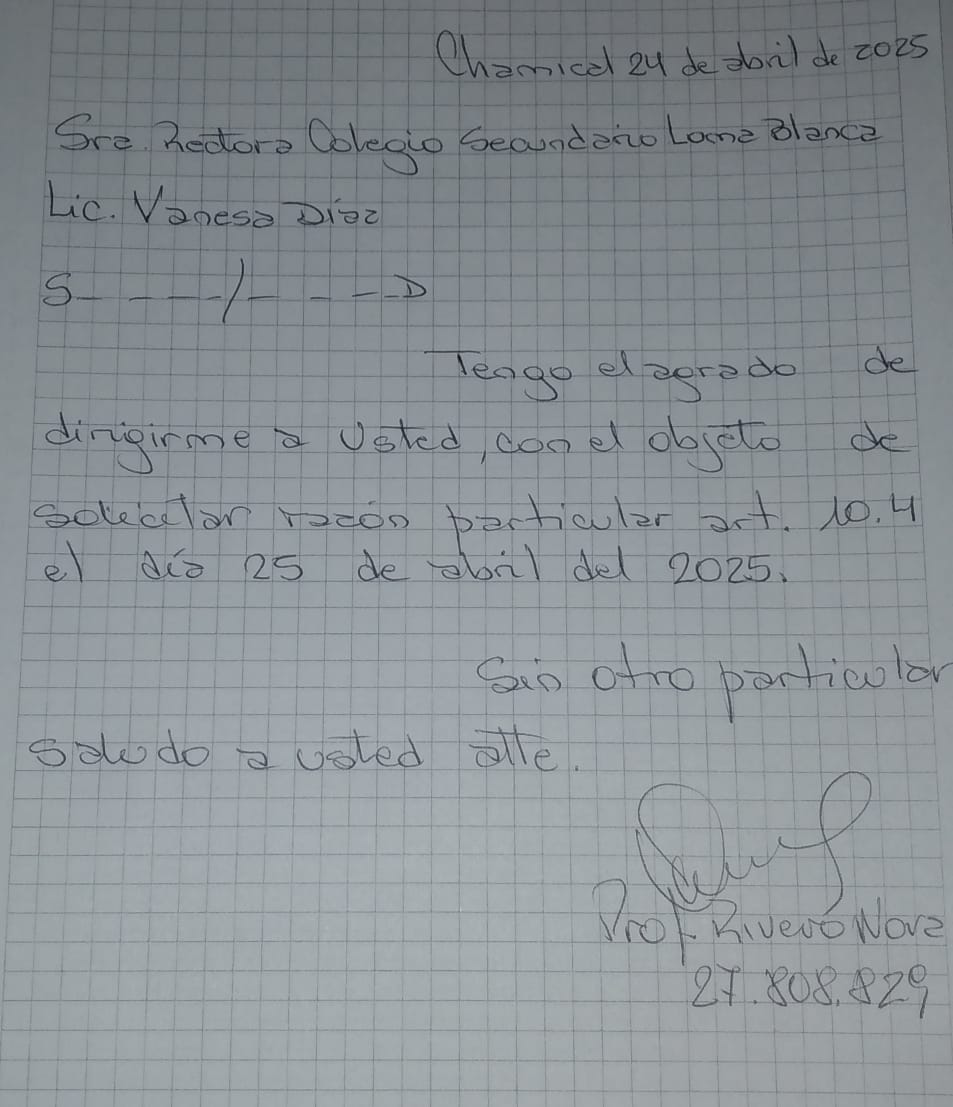 Chamical 24 de abril de 2025
Sra. Rectora Colegio Secundario Loma Blanca
Lic. Vanesa Díaz
S_ _ _ _/_ _ _ _D
Tengo el agrado de
dirigirme a Usted, con el objeto de
solicitar razón particular art. 10.4
el día 25 de abril del 2025.
Sin otro particular
saludo a usted atte.
Prof. Rivero Nora
27.808.829